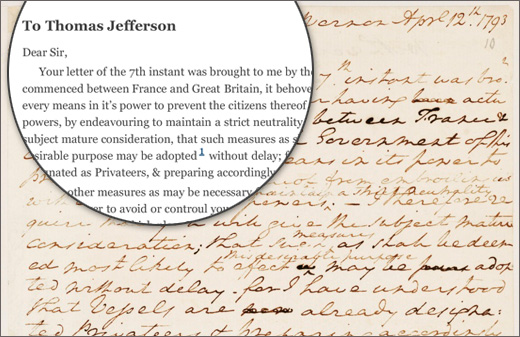 To Thomas Jefferson
Dear Sir,
Your letter of the 7th instant was brought to me by the
commenced between France and Great Britain, it behove
every means in it's power to prevent the citizens thereof
powers, by endeavouring to maintain a strict neutrality
subject mature consideration, that such measures as s
sirable purpose may be adopted1 without delay; f
nated as Privateers, & preparing accordingly
other measures as may be necessary
er to avoid or controul you
ernon April 12th. 1793
10
th instant was bro
having actu
between France &
Government of this
ans in its power to
from embroiling
maintain a strict neutrality
I therefore re
quire will give the subject mature
measures
consideration; that such as shall be deem
this desirable purpose
ed most likely to effect may be adop
ted without delay. for I have understood
that Vessels are already designa
ted Privateers & preparing accordingly